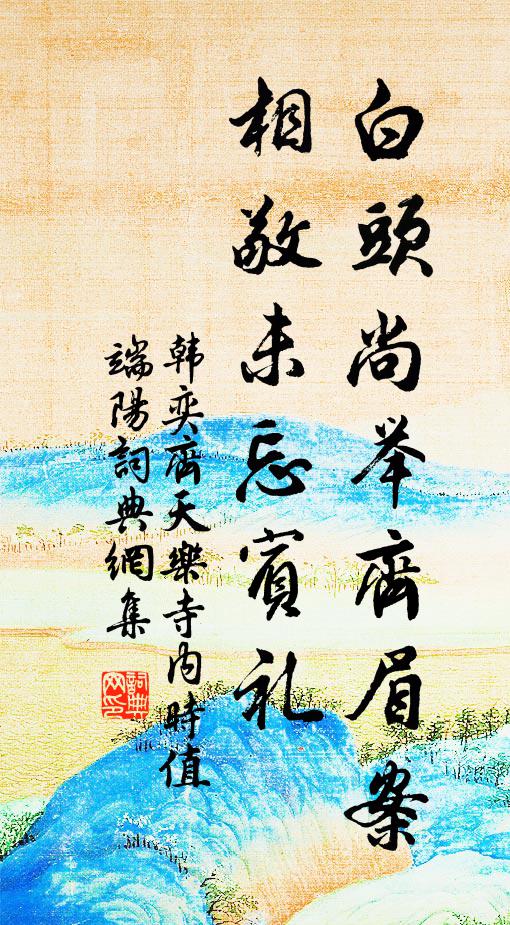 白頭尚举齊眉案
相敬未忘賓礼
韩奕齊天樂寺内時值
端陽詞典網集
詞典網印